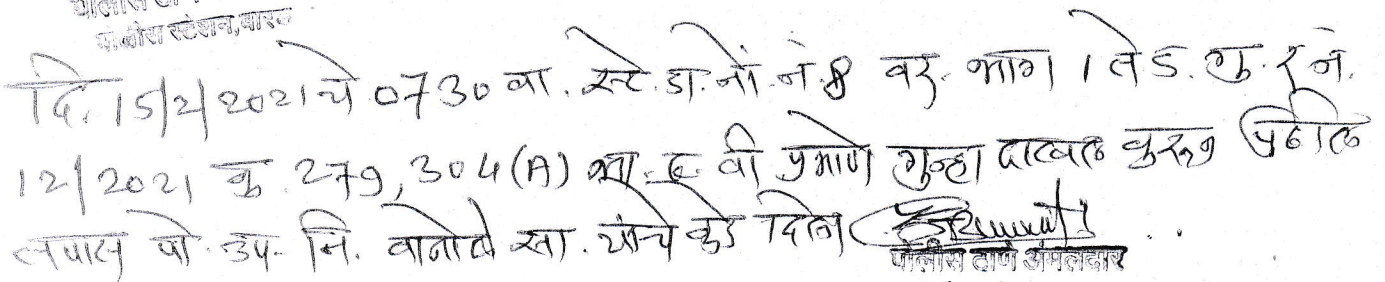 पोलीस
पोलीस स्टेशन,
दि. 15/2/2021 चे 0730 वा. स्टे. डा. नों. नं. 8 वर भाग 1 ते 5. गु. र नं.
12/2021 कं. 279, 304 (A) भा. द. वी प्रमाणे गुन्हा दाखल करून पुढील
तपास पो. उप. नि. सा. यांचे कडे दिला
पोलीस ठाणे अंमलदार